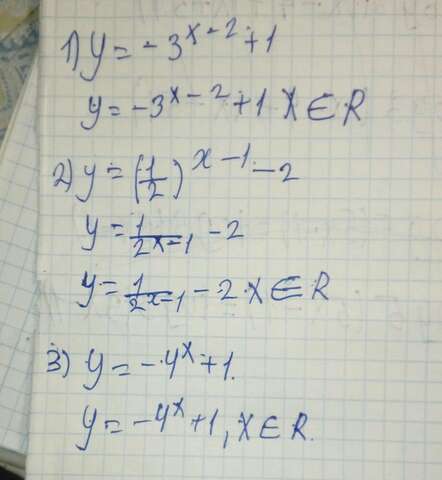 1) y = -3^{x-2}+1
y = -3^{x-2}+1 X ∈ R
2) y = (1/2)^{x-1} -2
y = 1/2^{x-1} -2
y = 1/2^{x-1} -2 X ∈ R
3) y = -4^x+1.
y = -4^x+1, X ∈ R.